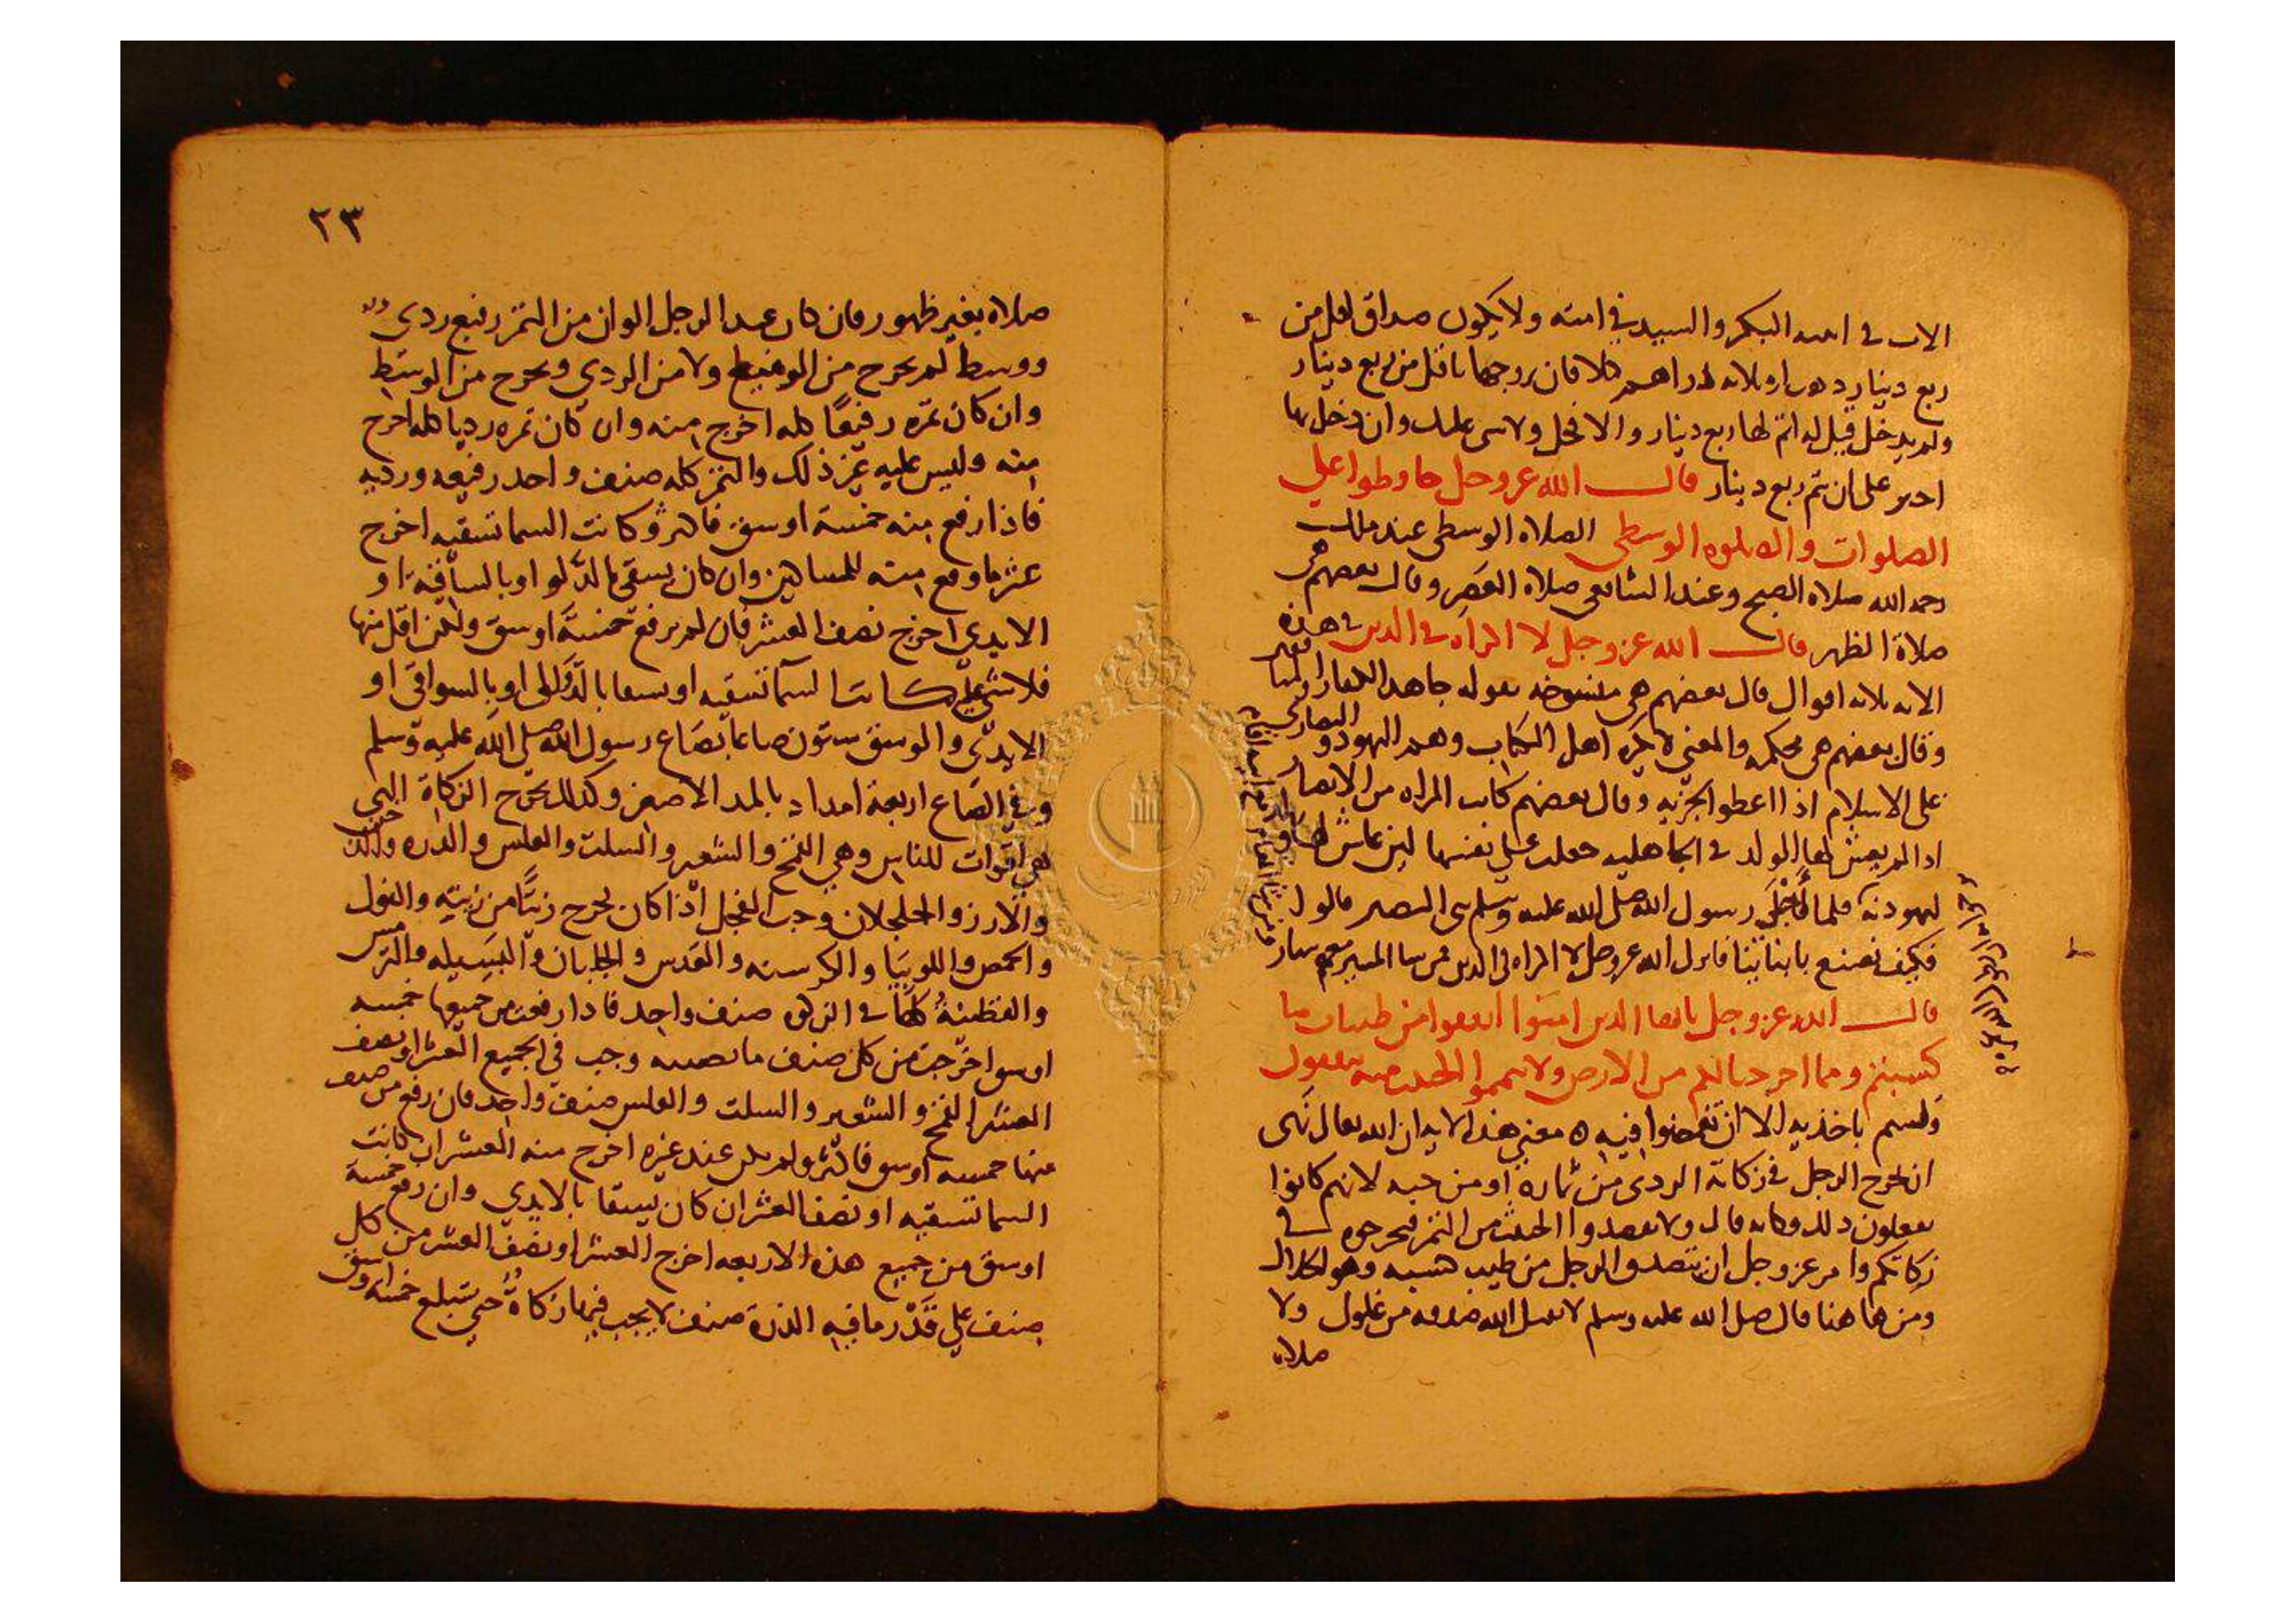 الاب في ابنته البكر والسيد في امته ولا يكون صداق اقل من
ربع دينار ذهب او ثلاثه دراهم كلا فان زوجها باقل من ربع دينار
ولم يدخل قيل له اتم لها ربع دينار والا فحل ولا شي عليك وان دخل بها
اجبر على ان يتم ربع دينار قال الله عز وجل حافظوا علي
الصلوات والصلوه الوسطى الصلاه الوسطى عند مالك
رحمه الله صلاه الصبح وعند الشافعي صلاه العصر وقال بعضهم هي
صلاة الظهر قال الله عز وجل لا اكراه في الدين في هذه
الايه ثلاثه اقوال قال بعضهم هي منسوخه بقوله جاهد الكفار
وقال بعضهم هي محكمه والمعني لا يكره اهل الكتاب وهم اليهود والنصارى
على الاسلام اذا اعطوا الجزيه وقال بعضهم كانت المراه من الانصار
اذا لم يعش لها الولد في الجاهليه جعلت على نفسها لين عاش لها ولد
لتهودنه فلما اجلى رسول الله صلى الله عليه وسلم بني النضير قالوا
فكيف نصنع بابناينا فانزل الله عز وجل لا اكراه في الدين
قال الله عز وجل يا ايها الذين امنوا انفقوا من طيبات ما
كسبتم ومما اخرجنا لكم من الارض ولا تيمموا الخبيث منه تنفقون
ولستم باخذيه الا ان تغمضوا فيه ه معني هذه الايه ان الله تعالى نهى
ان يخرج الرجل في زكاته الردي من ثماره او من حبه لانهم كانوا
يفعلون ذلك وكانه قال ولا تقصدوا الخبيث من التمر فتخرجوه في
زكاتكم وامر عز وجل ان يتصدق الرجل من طيب كسبه وهو الحلال
ومن هاهنا قال صلى الله عليه وسلم لا يقبل الله صدقه من غلول ولا
صلاه
٢٣
صلاه بغير طهور فان كان عند الرجل الوان من التمر رفيع ردي
ووسط لم يخرج من الرفيع ولا من الردي ويخرج من الوسط
وان كان تمره رفيعا كله اخرج منه وان كان تمره رديا كله اخرج
منه وليس عليه غير ذلك والتمر كله صنف واحد رفيعه ورديه
فاذا رفع منه خمسة اوسق فاكثر وكانت السما تسقيه اخرج
عشر ما رفع منه للمساكين وان كان يسقى بالدلو او بالساقيه او
الايدي اخرج نصف العشر فان لم يرفع خمسة اوسق ولكن اقل منها
فلا شي عليه كانت السما تسقيه او يسقا بالدوالى او بالسواقى او
الايدي والوسق ستون صاعا بصاع رسول الله صلى الله عليه وسلم
وفي الصاع اربعة امداد بالمد الاصغر وكذلك يخرج الزكاة التي
هي اقوات للناس وهي القمح والشعير والسلت والعلس والذره والدخن
والارز والجلجلان وحب الفجل اذا كان يخرج زيتا من زيته والفول
والحمص واللوبيا والكرسنه والعدس والجلبان والبسيله والترمس
والقطنية كلها في الزكاه صنف واحد فاذا رفع من جميعها خمسه
اوسق اخرجت من كل صنف ما نصيبه وجب في الجميع العشر او نصف
العشر القمح والشعير والسلت والعلس صنف واحد فان رفع من صنف
منها خمسه اوسق فاكثر ولم يكن عند غيره اخرج منه العشر ان كانت
السما تسقيه او نصف العشر ان كان يسقا بالايدي وان رفع خمسة
اوسق من جميع هذه الاربعه اخرج العشر او نصف العشر من كل
صنف علي قدر ما فيه الذرة صنف لا يجب فيها زكاة حتي تبلغ خمسه اوسق